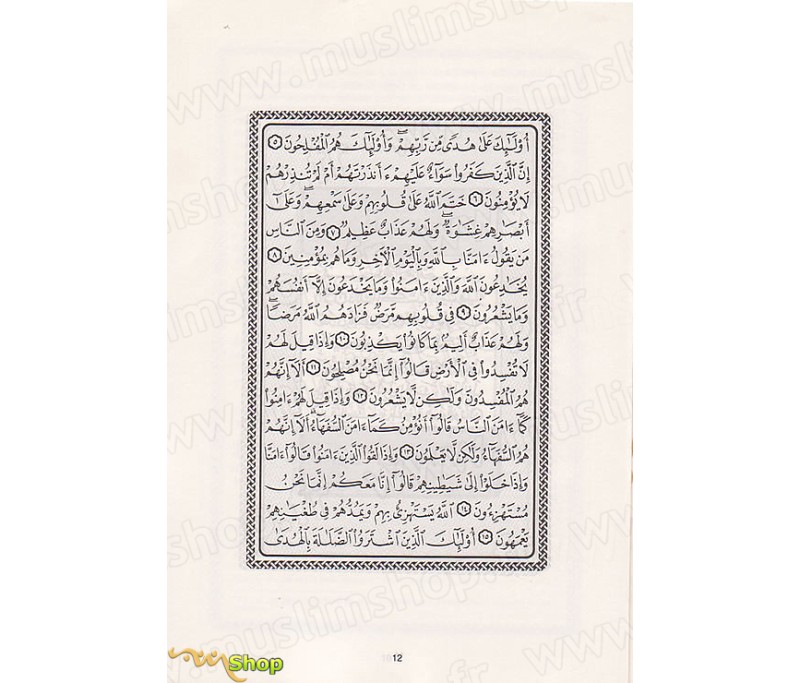 أُوْلَـٰٓئِكَ عَلَىٰ هُدًى مِّن رَّبِّهِمْۖ وَأُوْلَـٰٓئِكَ هُمُ ٱلْمُفْلِحُونَ ٥
إِنَّ ٱلَّذِينَ كَفَرُواْ سَوَآءٌ عَلَيْهِمْ ءَأَنذَرْتَهُمْ أَمْ لَمْ تُنذِرْهُمْ
لَا يُؤْمِنُونَ ٦ خَتَمَ ٱللَّهُ عَلَىٰ قُلُوبِهِمْ وَعَلَىٰ سَمْعِهِمْۖ وَعَلَىٰٓ
أَبْصَـٰرِهِمْ غِشَـٰوَةٌۖ وَلَهُمْ عَذَابٌ عَظِيمٌ ٧ وَمِنَ ٱلنَّاسِ
مَن يَقُولُ ءَامَنَّا بِٱللَّهِ وَبِٱلْيَوْمِ ٱلْـَٔاخِرِ وَمَا هُم بِمُؤْمِنِينَ ٨
يُخَـٰدِعُونَ ٱللَّهَ وَٱلَّذِينَ ءَامَنُواْ وَمَا يَخْدَعُونَ إِلَّآ أَنفُسَهُمْ
وَمَا يَشْعُرُونَ ٩ فِى قُلُوبِهِم مَّرَضٌ فَزَادَهُمُ ٱللَّهُ مَرَضًاۖ
وَلَهُمْ عَذَابٌ أَلِيمٌۢ بِمَا كَانُواْ يَكْذِبُونَ ١٠ وَإِذَا قِيلَ لَهُمْ
لَا تُفْسِدُواْ فِى ٱلْأَرْضِ قَالُوٓاْ إِنَّمَا نَحْنُ مُصْلِحُونَ ١١ أَلَآ إِنَّهُمْ
هُمُ ٱلْمُفْسِدُونَ وَلَـٰكِن لَّا يَشْعُرُونَ ١٢ وَإِذَا قِيلَ لَهُمْ ءَامِنُواْ
كَمَآ ءَامَنَ ٱلنَّاسُ قَالُوٓاْ أَنُؤْمِنُ كَمَآ ءَامَنَ ٱلسُّفَهَآءُۗ أَلَآ إِنَّهُمْ
هُمُ ٱلسُّفَهَآءُ وَلَـٰكِن لَّا يَعْلَمُونَ ١٣ وَإِذَا لَقُواْ ٱلَّذِينَ ءَامَنُواْ قَالُوٓاْ ءَامَنَّا
وَإِذَا خَلَوْاْ إِلَىٰ شَيَـٰطِينِهِمْ قَالُوٓاْ إِنَّا مَعَكُمْ إِنَّمَا نَحْنُ
مُسْتَهْزِءُونَ ١٤ ٱللَّهُ يَسْتَهْزِئُ بِهِمْ وَيَمُدُّهُمْ فِى طُغْيَـٰنِهِمْ
يَعْمَهُونَ ١٥ أُوْلَـٰٓئِكَ ٱلَّذِينَ ٱشْتَرَوُاْ ٱلضَّلَـٰلَةَ بِٱلْهُدَىٰ
12
Shop
www.muslimshop.fr